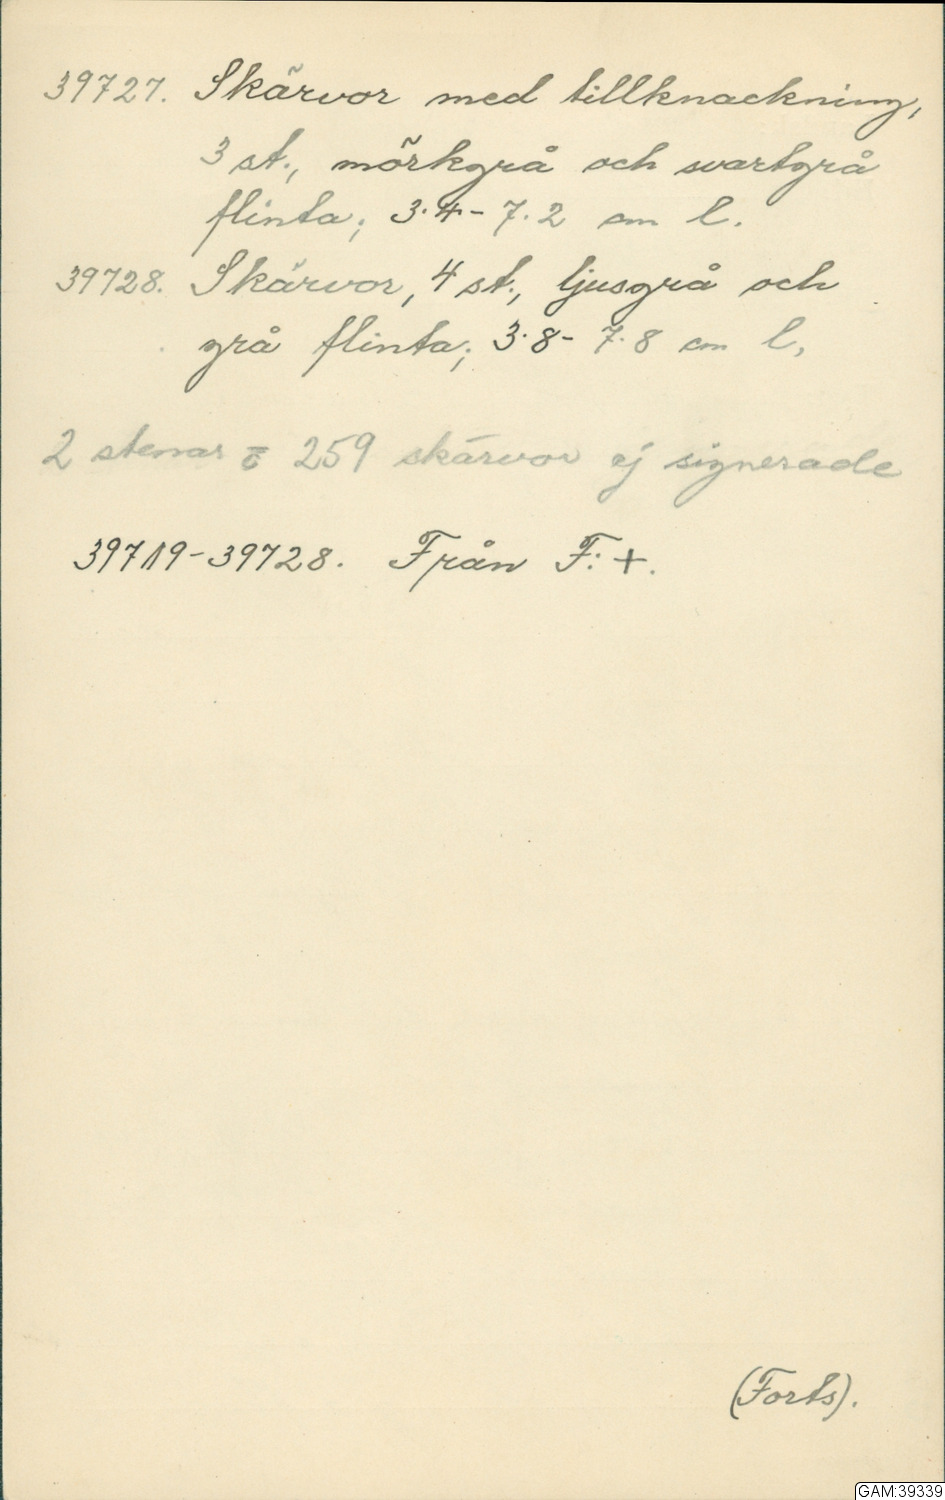 39727. Skärvor med tillknackning,
3 st., mörkgrå och svartgrå
flinta; 3.4-7.2 cm l.
39728. Skärvor, 4 st., ljusgrå och
grå flinta; 3.8-7.8 cm l.
2 stenar o 259 skärvor ej signerade
39719-39728. Från F: +.
(Forts).
GAM:39339